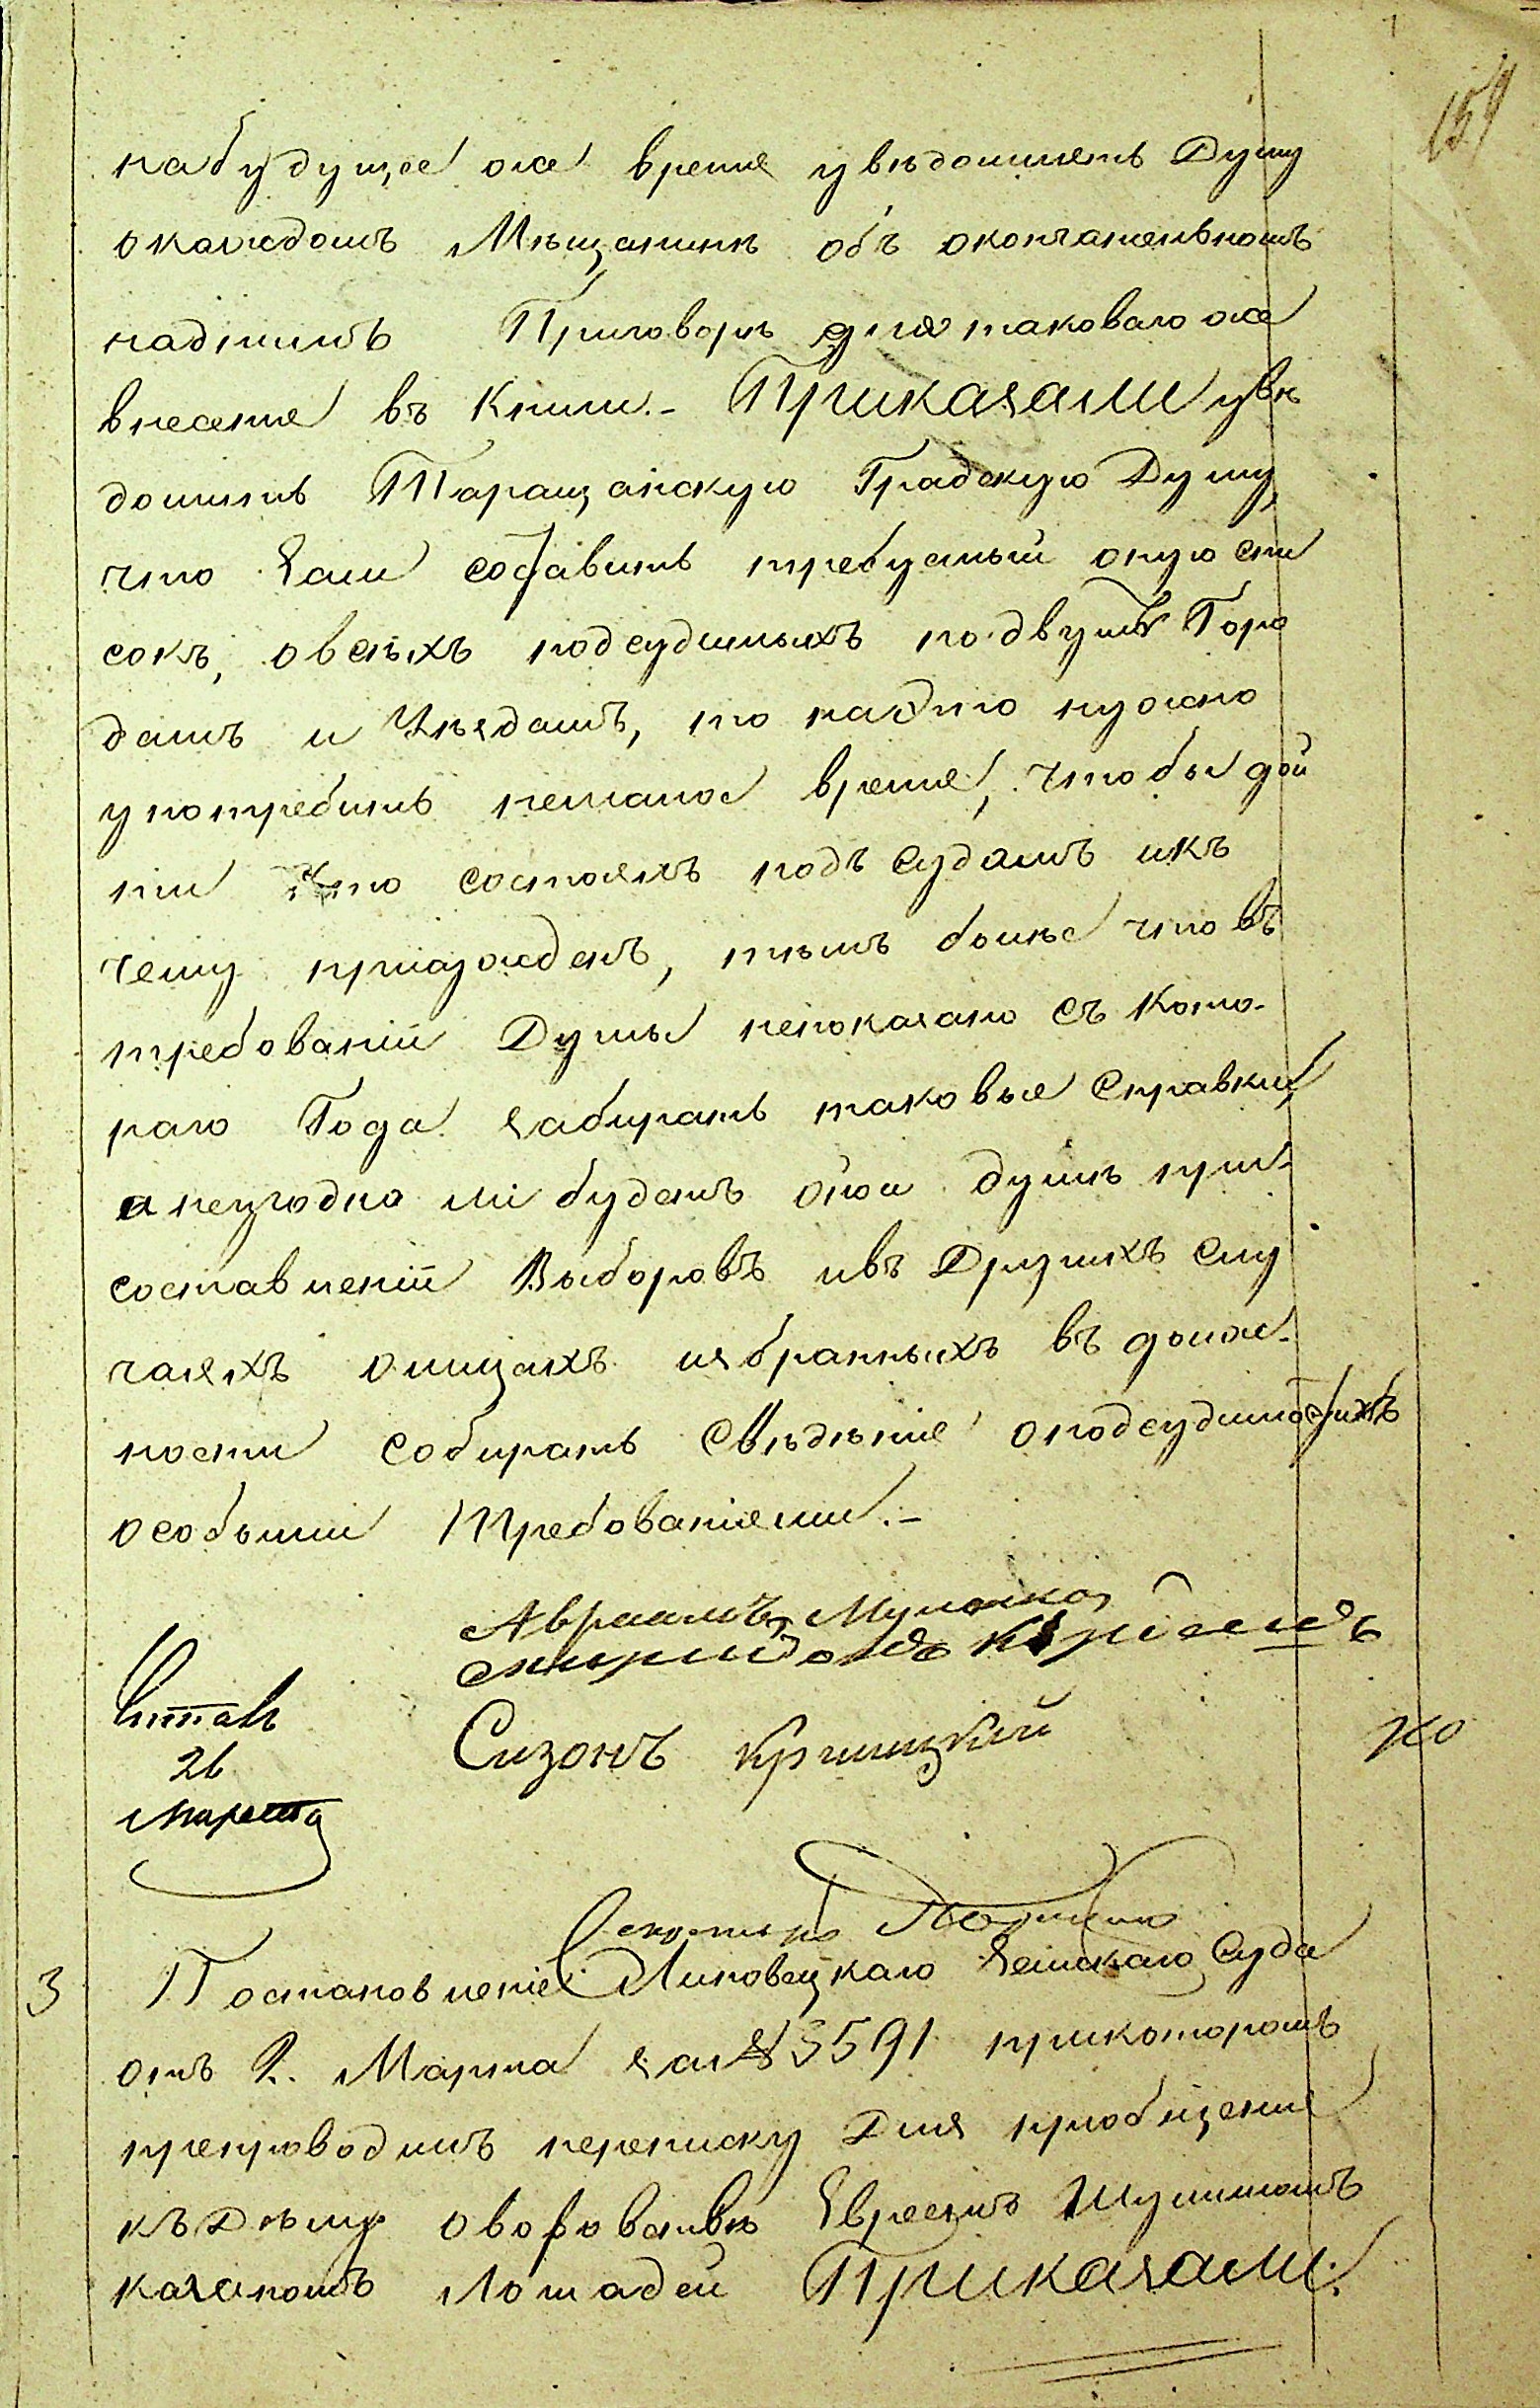 159
на будущее же время увѣдомлять Думу
о каждомъ Мѣщанинѣ объ окончательномъ
надъ нимъ Приговорѣ для таковаго же
внесенія въ Книги. - Приказали увѣ
домить Таращанскую Градскую Думу,
что Если составить требуемый оную спи
сокъ, о всѣхъ подсудимыхъ по двумъ Горо
дамъ и Уѣздамъ, то на это нужно
употребить немалое время, чтобы дой
ти кто состоялъ подъ Судомъ и къ
чему присужденъ, тѣмъ болѣе что въ
требованіи Думы непоказано съ кото-
раго Года забирать таковые Справки,
а неугодно ли будетъ оной думѣ при
составленіи Выборовъ и въ Другихъ слу
чаяхъ о лицахъ избранныхъ въ долж-
ности собирать Свѣдѣніе о подсудимостихъ
особыми Требованіями. -
Авраамъ
Сизонъ Криницкій
Читалъ
26
Марта
Секретарь
3 Постановленіе Липовецкаго Земскаго Суда
отъ 2. Марта за № 3591 при которомъ
препроводилъ переписку для пріобщенія
къ Дѣлу о воровствѣ Евреемъ Шулимомъ
Казакомъ Лошадей Приказали: